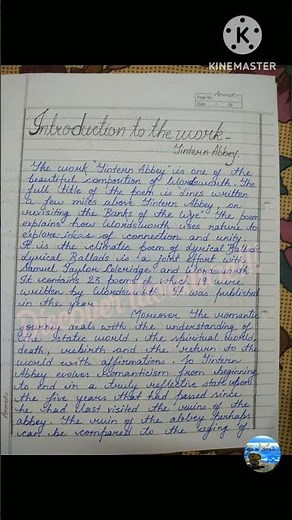 KINEMASTER
Page No.
Date
Introduction to the work-
Tintern Abbey.
The work "Tintern Abbey" is one of the
beautiful composition of Wordsworth. The
full title of the poem is "Lines written
a few miles above Tintern Abbey, on
revisiting the Banks of the Wye". The poem
explains how Wordsworth uses nature to
explore ideas of connection and unity.
It is the climatic poem of Lyrical
Lyrical Ballads is a joint effort with
Samuel Taylor Coleridge and Wordsworth.
It contains 23 poems of which 19 were
written by Wordsworth. It was published
in the year
Moreover The romantic
journey deals with the understanding of
the static world, the spiritual world,
death, rebirth and the return to the
world with affirmations. So Tintern
Abbey evolves romanticism from beginning
to end in a truly reflective state upon
the five years that had passed since
he had last visited the ruins of the
abbey. The ruin of the abbey perhaps
can be compared to the aging of